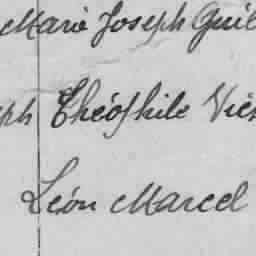 Marie Joseph Guil
ph Théophile Vic
Léon Marcel